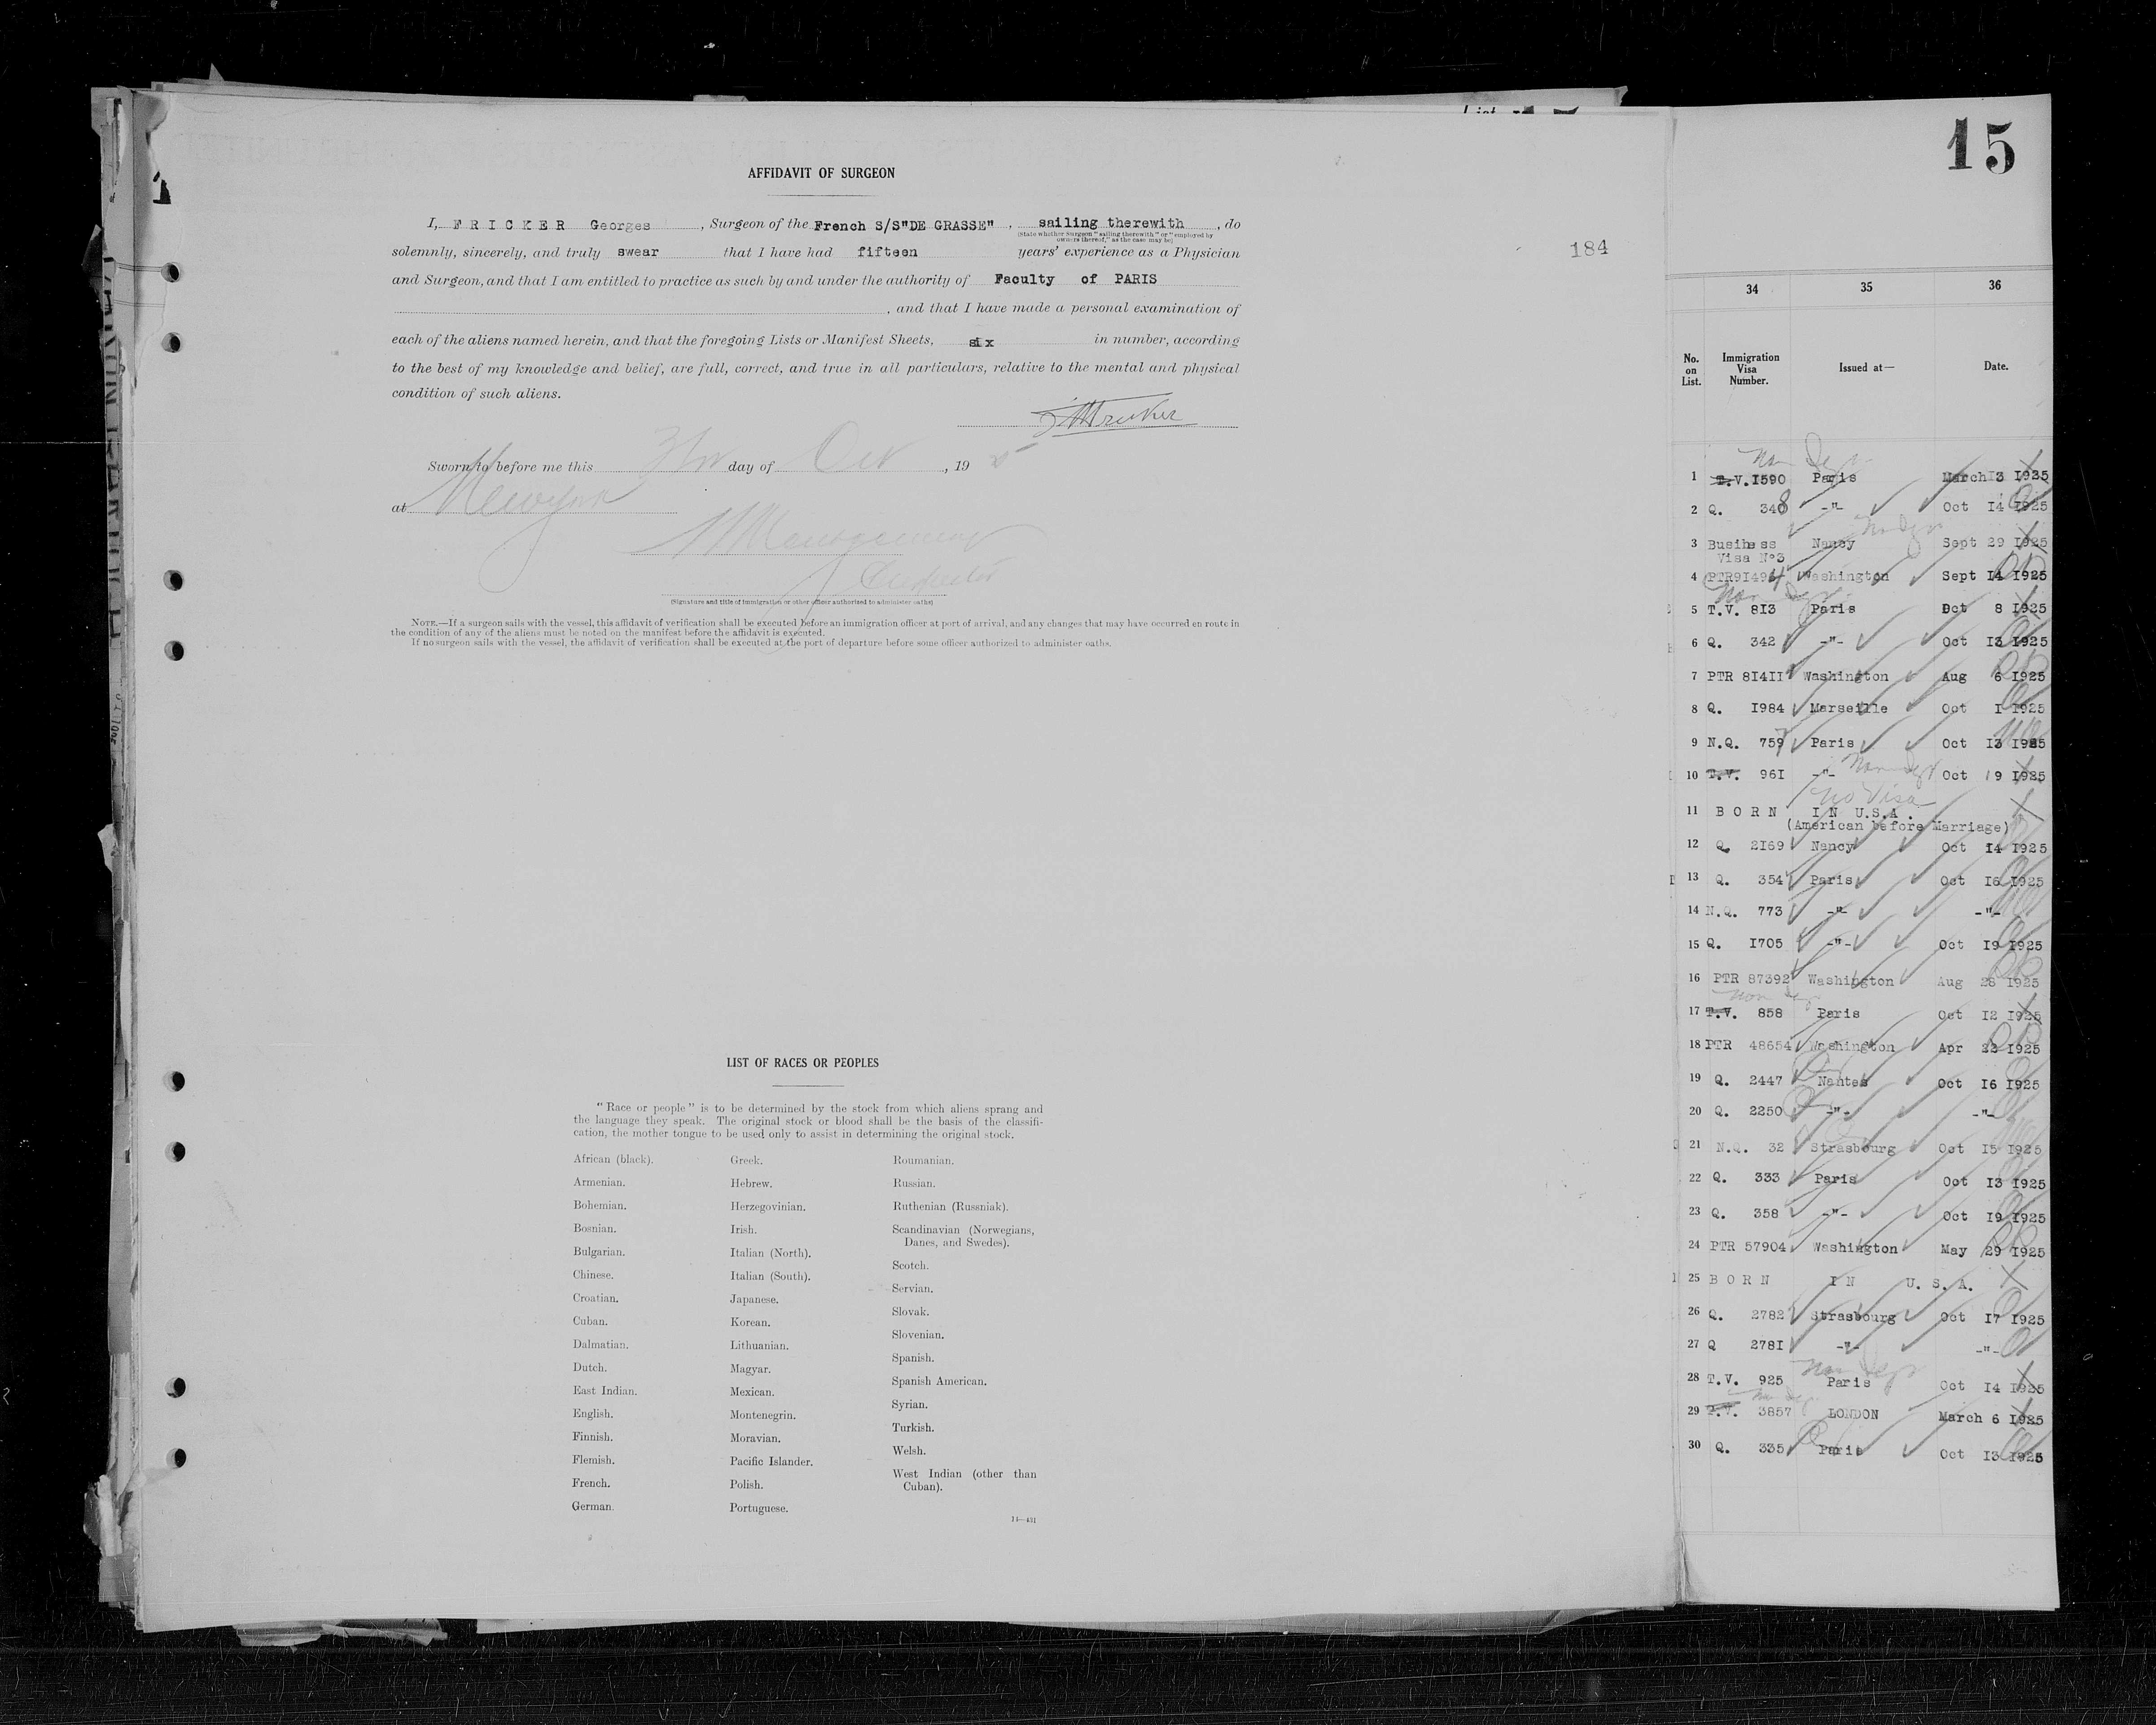 AFFIDAVIT OF SURGEON
I, FRICKER Georges, Surgeon of the French S/S"DE GRASSE", sailing therewith, do
(State whether Surgeon "sailing therewith" or "employed by
owners thereof," as the case may be)
solemnly, sincerely, and truly swear that I have had fifteen years' experience as a Physician
and Surgeon, and that I am entitled to practice as such by and under the authority of Faculty of PARIS
, and that I have made a personal examination of
each of the aliens named herein, and that the foregoing Lists or Manifest Sheets, six in number, according
to the best of my knowledge and belief, are full, correct, and true in all particulars, relative to the mental and physical
condition of such aliens.
Sworn to before me this day of Oct, 19 25
at New York
Montgomery
Inspector
(Signature and title of immigration or other officer authorized to administer oaths)
NOTE.—If a surgeon sails with the vessel, this affidavit of verification shall be executed before an immigration officer at port of arrival, and any changes that may have occurred en route in
the condition of any of the aliens must be noted on the manifest before the affidavit is executed.
If no surgeon sails with the vessel, the affidavit of verification shall be executed at the port of departure before some officer authorized to administer oaths.
184
LIST OF RACES OR PEOPLES
"Race or people" is to be determined by the stock from which aliens sprang and
the language they speak. The original stock or blood shall be the basis of the classifi-
cation, the mother tongue to be used only to assist in determining the original stock.
African (black).
Armenian.
Bohemian.
Bosnian.
Bulgarian.
Chinese.
Croatian.
Cuban.
Dalmatian.
Dutch.
East Indian.
English.
Finnish.
Flemish.
French.
German.
Greek.
Hebrew.
Herzegovinian.
Irish.
Italian (North).
Italian (South).
Japanese.
Korean.
Lithuanian.
Magyar.
Mexican.
Montenegrin.
Moravian.
Pacific Islander.
Polish.
Portuguese.
Roumanian.
Russian.
Ruthenian (Russniak).
Scandinavian (Norwegians,
Danes, and Swedes).
Scotch.
Servian.
Slovak.
Slovenian.
Spanish.
Spanish American.
Syrian.
Turkish.
Welsh.
West Indian (other than
Cuban).
14—431
15
34 35 36
No. on List. Immigration Visa Number. Issued at— Date.
1 T.V. I590 Paris March I3 I925
2 Q. 348 -"- Oct I4 I925
3 Business Nancy Sept 29 I925
Visa N°3
4 PTR9I494 Washington Sept I4 I925
5 T.V. 8I3 Paris Oct 8 I925
6 Q. 342 -"- Oct I3 I925
7 PTR 8I4II Washington Aug 6 I925
8 Q. I984 Marseille Oct I I925
9 N.Q. 759 Paris Oct I3 I925
10 T.V. 96I -"- Non Oct 19 I925
no Visa
11 BORN IN U.S.A.
(American before Marriage)
12 Q. 2I69 Nancy Oct I4 I925
13 Q. 354 Paris Oct I6 I925
14 N.Q. 773 -"- -"-
15 Q. I705 -"- Oct I9 I925
16 PTR 87392 Washington Aug 28 I925
17 T.V. 858 Paris Oct I2 I925
18 PTR 48654 Washington Apr 22 I925
19 Q. 2447 Nantes Oct I6 I925
20 Q. 2250 -"- -"-
21 N.Q. 32 Strasbourg Oct I5 I925
22 Q. 333 Paris Oct I3 I925
23 Q. 358 -"- Oct I9 I925
24 PTR 57904 Washington May 29 I925
25 BORN IN U.S.A.
26 Q. 2782 Strasbourg Oct I7 I925
27 Q 278I -"- -"-
28 T.V. 925 Paris Oct I4 I925
29 T.V. 3857 LONDON March 6 I925
30 Q. 335 Paris Oct I3 I925